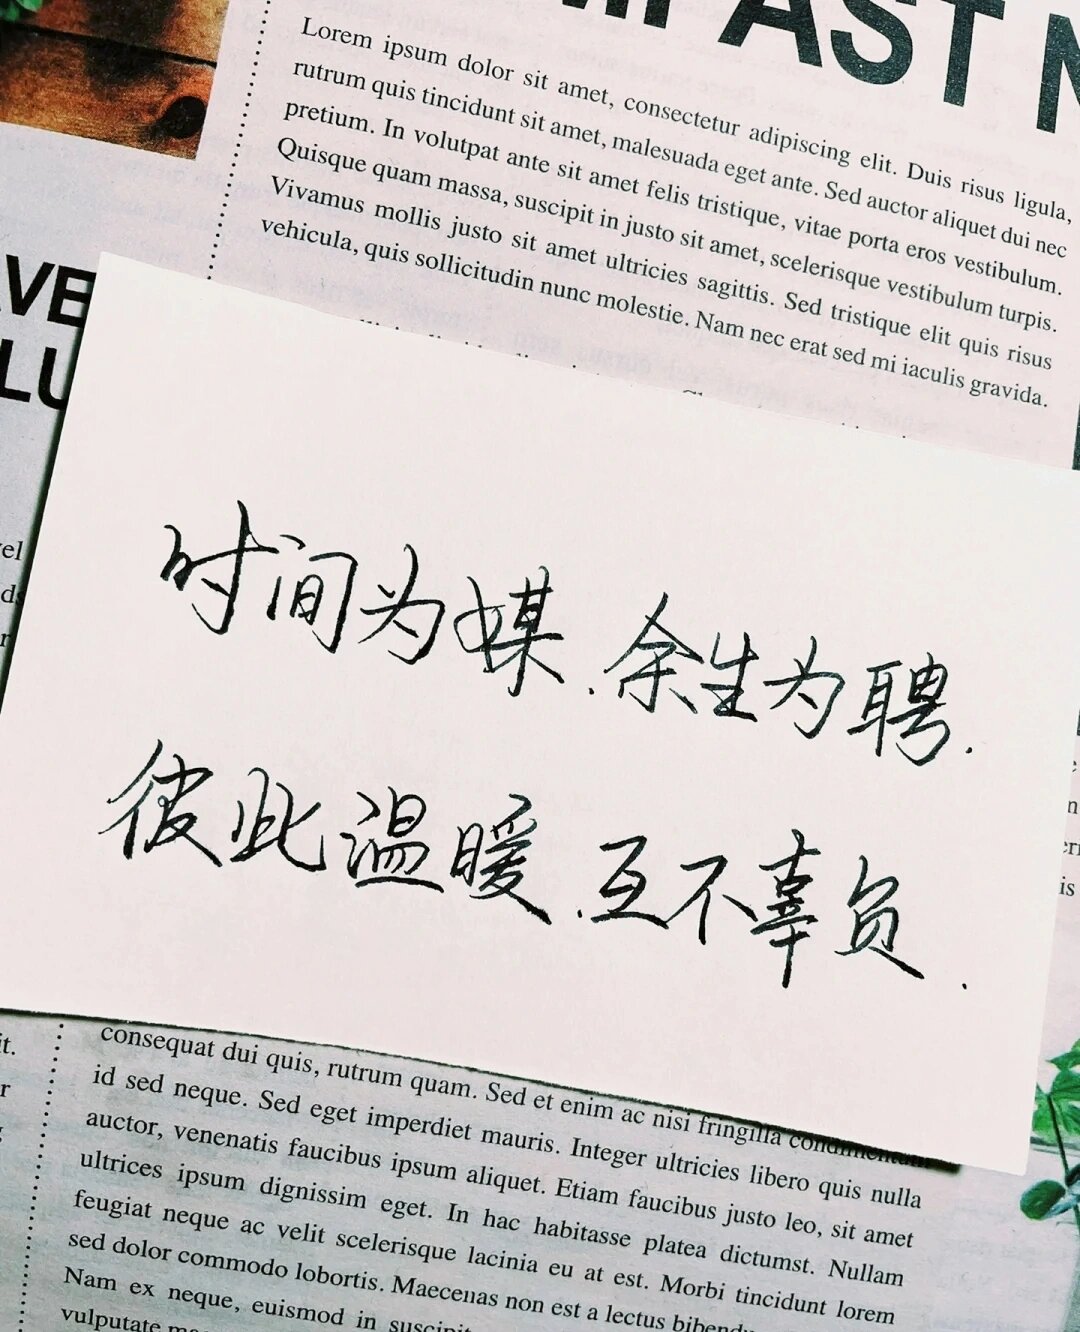 PAST N
Lorem ipsum dolor sit amet, consectetur adipiscing elit. Duis risus ligula,
rutrum quis tincidunt sit amet, malesuada eget ante. Sed auctor aliquet dui nec
pretium. In volutpat ante sit amet felis tristique, vitae porta eros vestibulum.
Quisque quam massa, suscipit in justo sit amet, scelerisque vestibulum turpis.
Vivamus mollis justo sit amet ultricies sagittis. Sed tristique elit quis risus
vehicula, quis sollicitudin nunc molestie. Nam nec erat sed mi iaculis gravida.
时间为媒.余生为聘.
彼此温暖.互不辜负.
consequat dui quis, rutrum quam. Sed et enim ac nisi fringilla condimentum
id sed neque. Sed eget imperdiet mauris. Integer ultricies libero quis nulla
auctor, venenatis faucibus ipsum aliquet. Etiam faucibus justo leo, sit amet
ultrices ipsum dignissim eget. In hac habitasse platea dictumst. Nullam
feugiat neque ac velit scelerisque lacinia eu at est. Morbi tincidunt lorem
sed dolor commodo lobortis. Maecenas non est a lectus bibendu
Nam ex neque, euismod in suscipit
vulputate